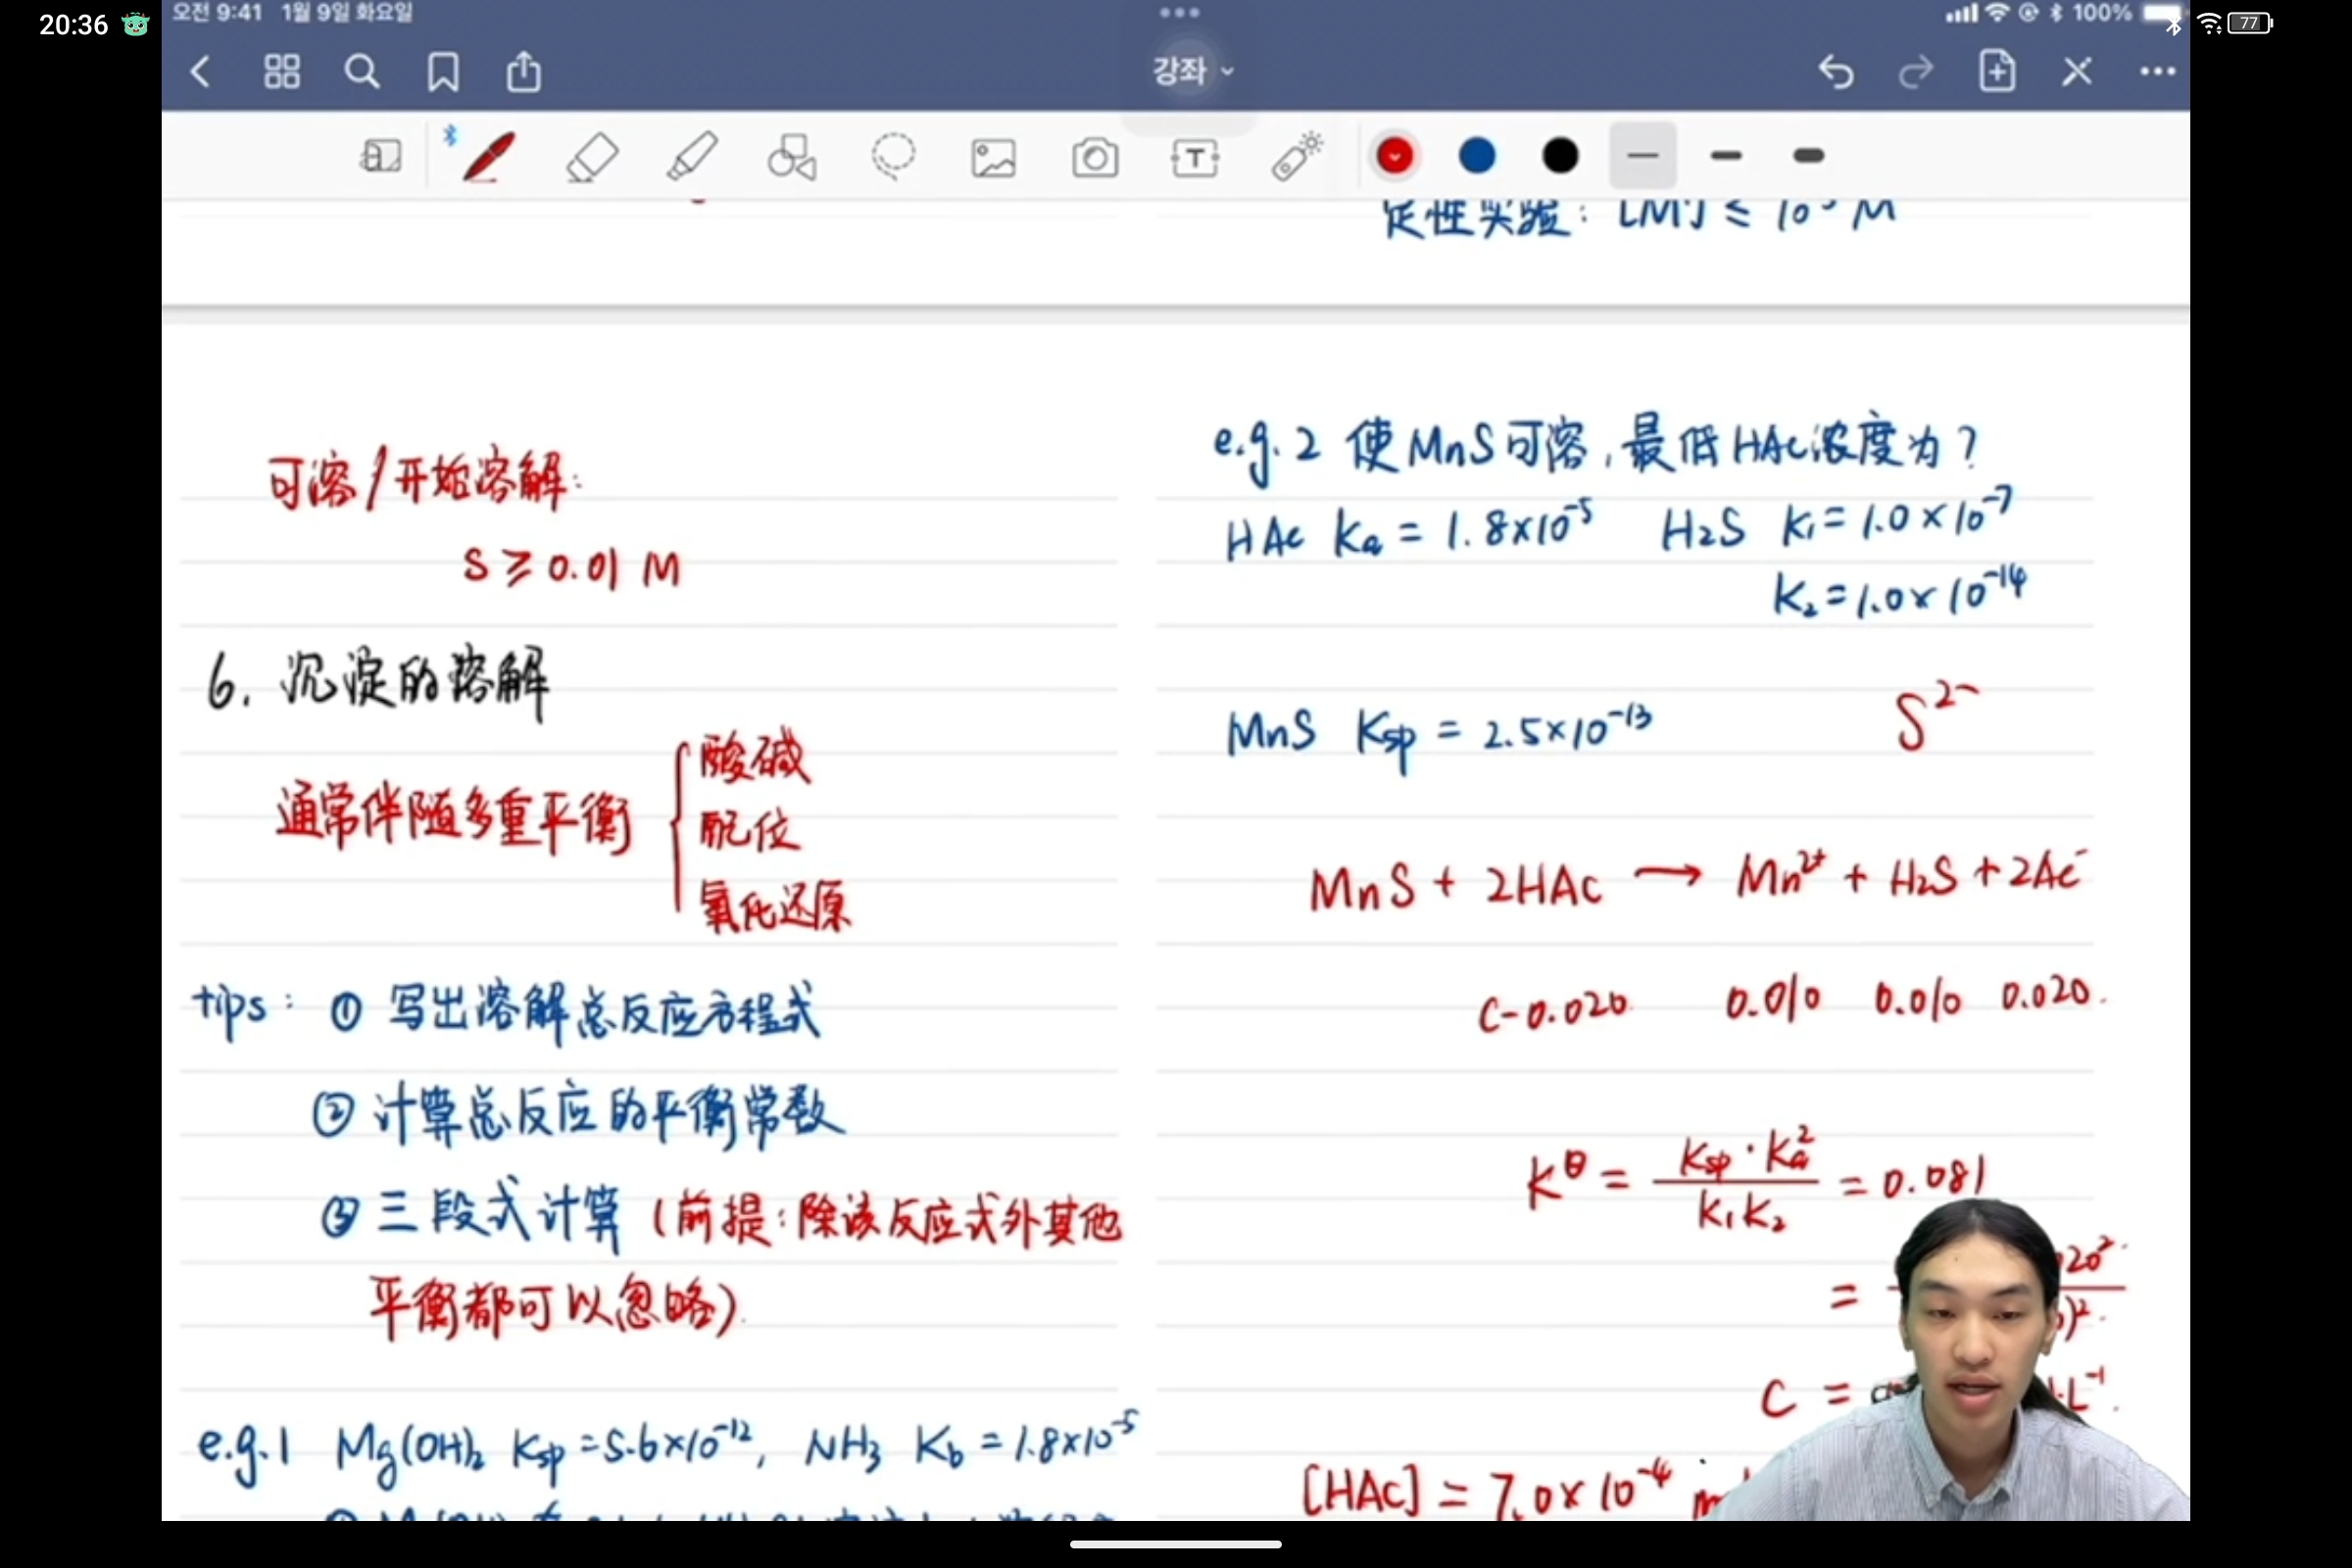 20:36
77
오전 9:41 1월 9일 화요일
100%
강좌
T
定性实验: [M] ≤ 10 M
可溶/开始溶解:
S ≥ 0.01 M
6. 沉淀的溶解
通常伴随多重平衡
酸碱
配位
氧化还原
tips: ① 写出溶解总反应方程式
② 计算总反应的平衡常数
③ 三段式计算 (前提: 除该反应式外其他
平衡都可以忽略).
e.g.1 Mg(OH)₂ Ksp = 5.6×10⁻¹², NH₃ Kb = 1.8×10⁻⁵
e.g.2 使MnS可溶, 最低HAc浓度为?
HAc Ka = 1.8×10⁻⁵ H₂S K₁ = 1.0×10⁻⁷
K₂ = 1.0×10⁻¹⁴
MnS Ksp = 2.5×10⁻¹³ S²⁻
MnS + 2HAc → Mn²⁺ + H₂S + 2Ac⁻
C-0.020 0.010 0.010 0.020.
K^θ = Ksp·Ka² / K₁K₂ = 0.081
= 20²
)²
C = L⁻¹.
[HAc] = 7.0×10⁻⁴